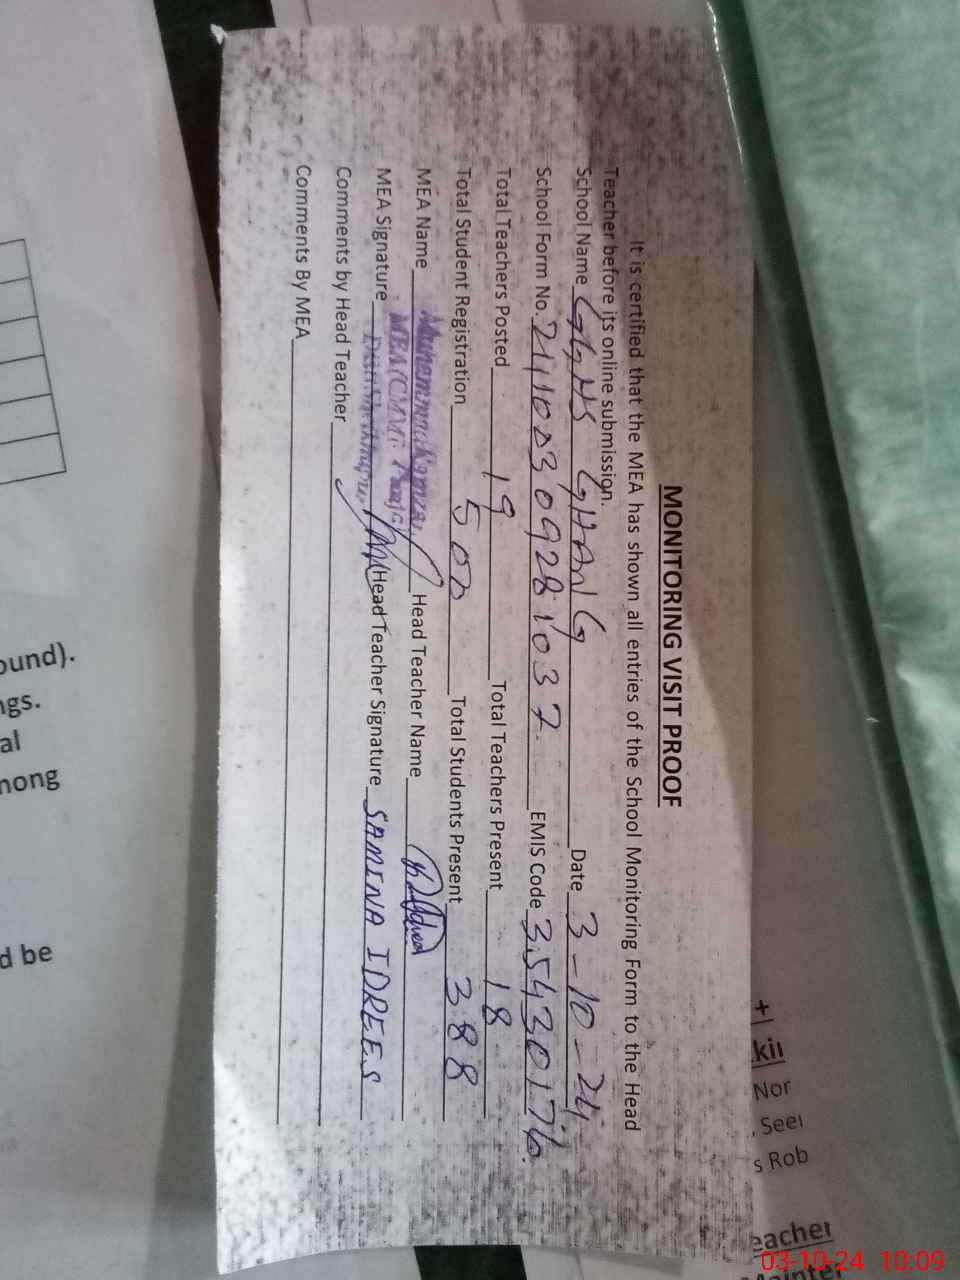 MONITORING VISIT PROOF
It is certified that the MEA has shown all entries of the School Monitoring Form to the Head
Teacher before its online submission.
School Name GGHS GHANG Date 3-10-24
School Form No. 241100309281037. EMIS Code 35430176.
Total Teachers Posted 19 Total Teachers Present 18
Total Student Registration 500 Total Students Present 388
MEA Name Muhammad Head Teacher Name
MEA(CMMF
MEA Signature Head Teacher Signature SAMINA IDREES
Comments by Head Teacher
Comments By MEA
ound).
ngs.
al
mong
d be
+
kil
Nor
. See
s Rob
eacher
03-10-24 10:09